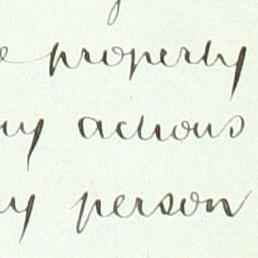 property
my actions
my person